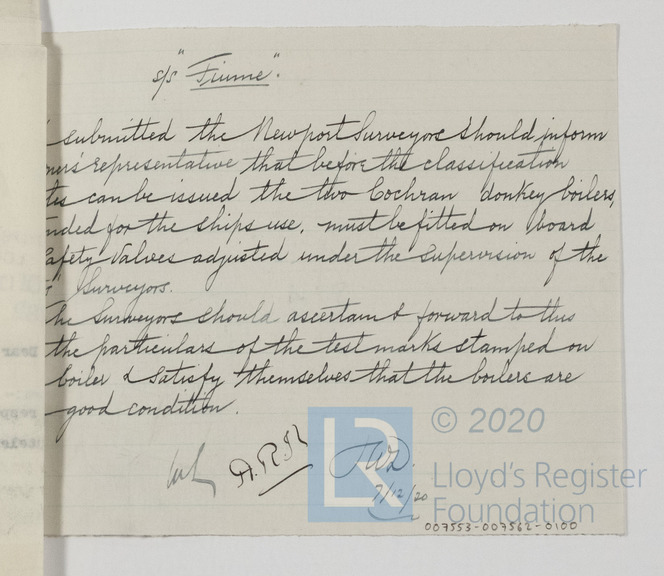 s/s "Fiume".
submitted the Newport Surveyors should inform
ner's representative that before the classification
tes can be issued the two Cochran donkey boilers,
nded for the ships use, must be fitted on board,
Safety Valves adjusted under the supervision of the
Surveyors.
he Surveyors should ascertain & forward to this
the particulars of the test marks stamped on
boiler & satisfy themselves that the boilers are
good condition.
7/12/20
LR
© 2020
Lloyd's Register
Foundation
007553-007562-0100
Dear